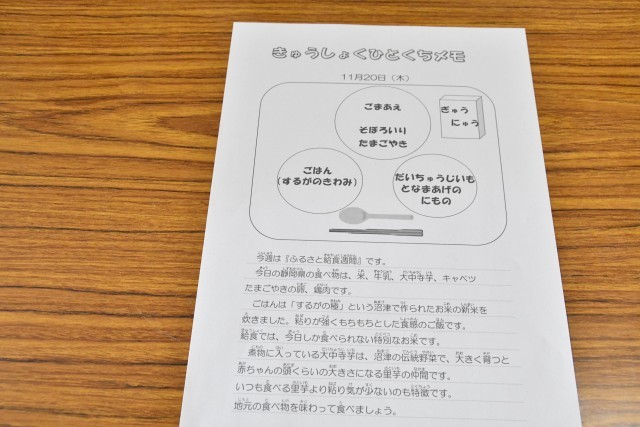 きゅうしょくひとくちメモ
11月20日（木）
ごまあえ
そぼろいり
たまごやき
ぎゅう
にゅう
ごはん
（するがのきわみ）
だいちゅうじいも
となまあげの
にもの
今週は『ふるさと給食週間』です。
今日の静岡県の食べ物は、米、牛乳、大中寺芋、キャベツ
たまごやきの卵、鶏肉です。
ごはんは「するがの極」という沼津で作られたお米の新米を
炊きました。粘りが強くもちもちとした食感のご飯です。
給食では、今日しか食べられない特別なお米です。
煮物に入っている大中寺芋は、沼津の伝統野菜で、大きく育つと
赤ちゃんの頭くらいの大きさになる里芋の仲間です。
いつも食べる里芋より粘り気が少ないのも特徴です。
地元の食べ物を味わって食べましょう。